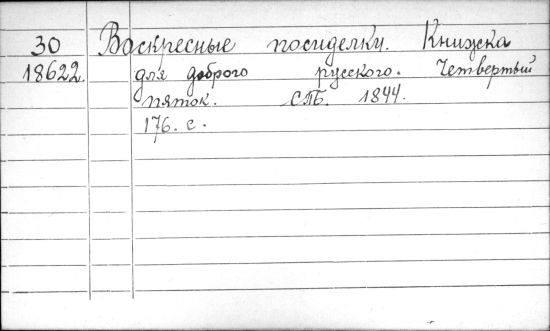 30 Воскресные посиделки. Книжка
18622. для доброго русского. Четвертый
пяток. СПБ. 1844.
176. с.